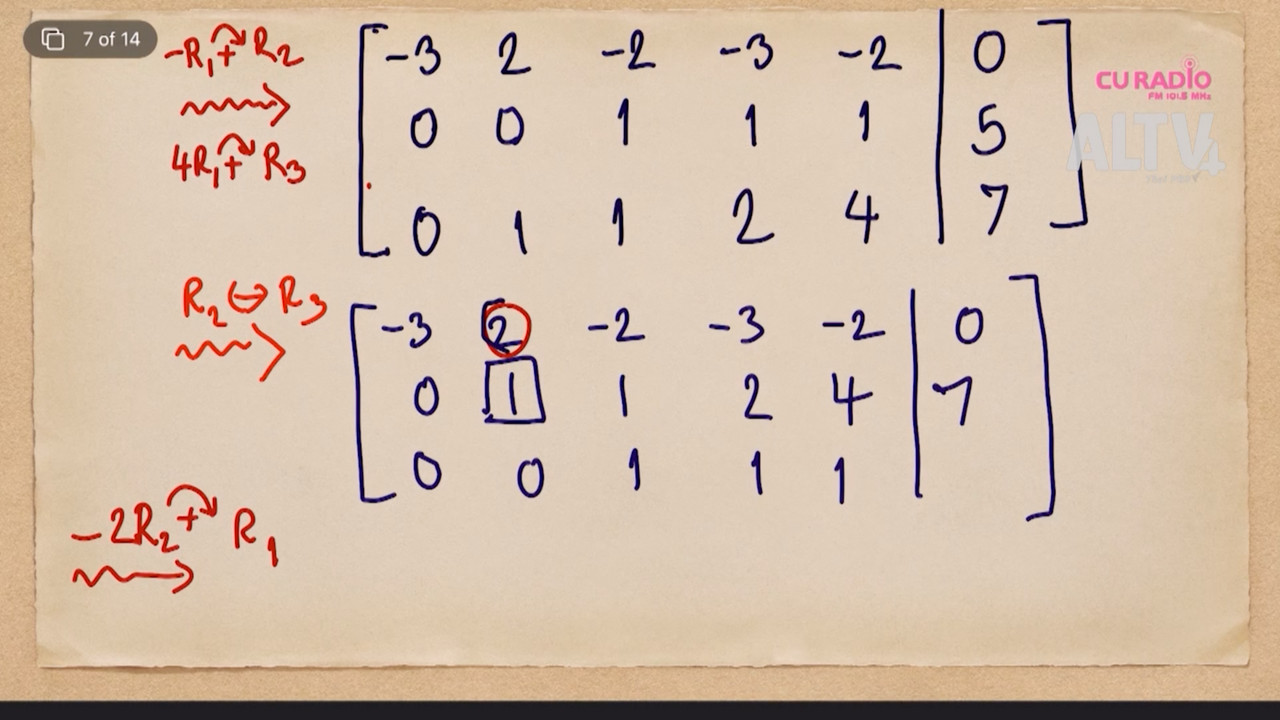 7 of 14
-R₁ + R₂
4R₁ + R₃
-3 2 -2 -3 -2 | 0
0 0 1 1 1 | 5
0 1 1 2 4 | 7
CU RADIO
FM 101.5 MHz
ALTV4
R₂ ↔ R₃
-3 2 -2 -3 -2 | 0
0 1 1 2 4 | 7
0 0 1 1 1 |
-2R₂ + R₁